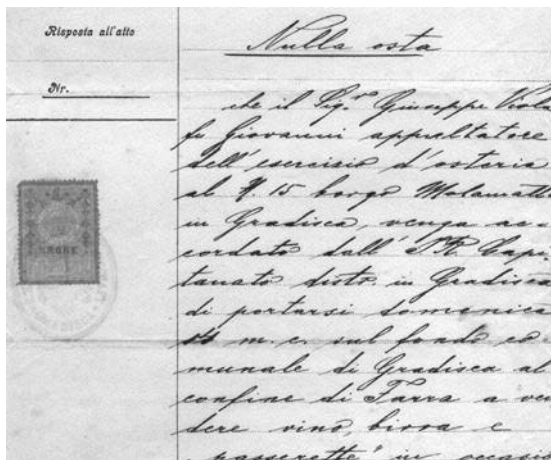 Risposta all'atto
Nr.
Nulla osta
che il Sig.r Giuseppe Viola
fu Giovanni appaltatore
dell'esercizio d'osteria
al N. 15 borgo
in Gradisca, venga ac-
cordato dall' I. R. Capi-
tanato distr. in Gradisca
di portarsi domenica
m. c. sul fondo co
munale di Gradisca al
confine di Farra a ven
dere vino, birra e
"passerette" in occasio